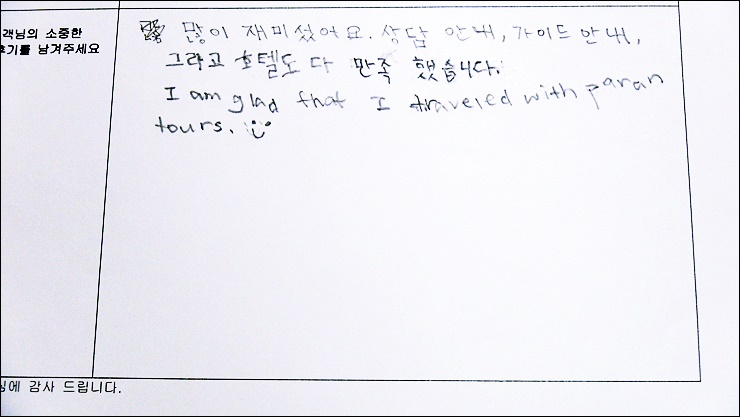 객님의 소중한
후기를 남겨주세요
많이 재미섰어요. 상담 안내, 가이드 안내,
그라고 호텔도 다 만족 했습니다.
I am glad that I traveled with paran
tours.
님에 감사 드립니다.